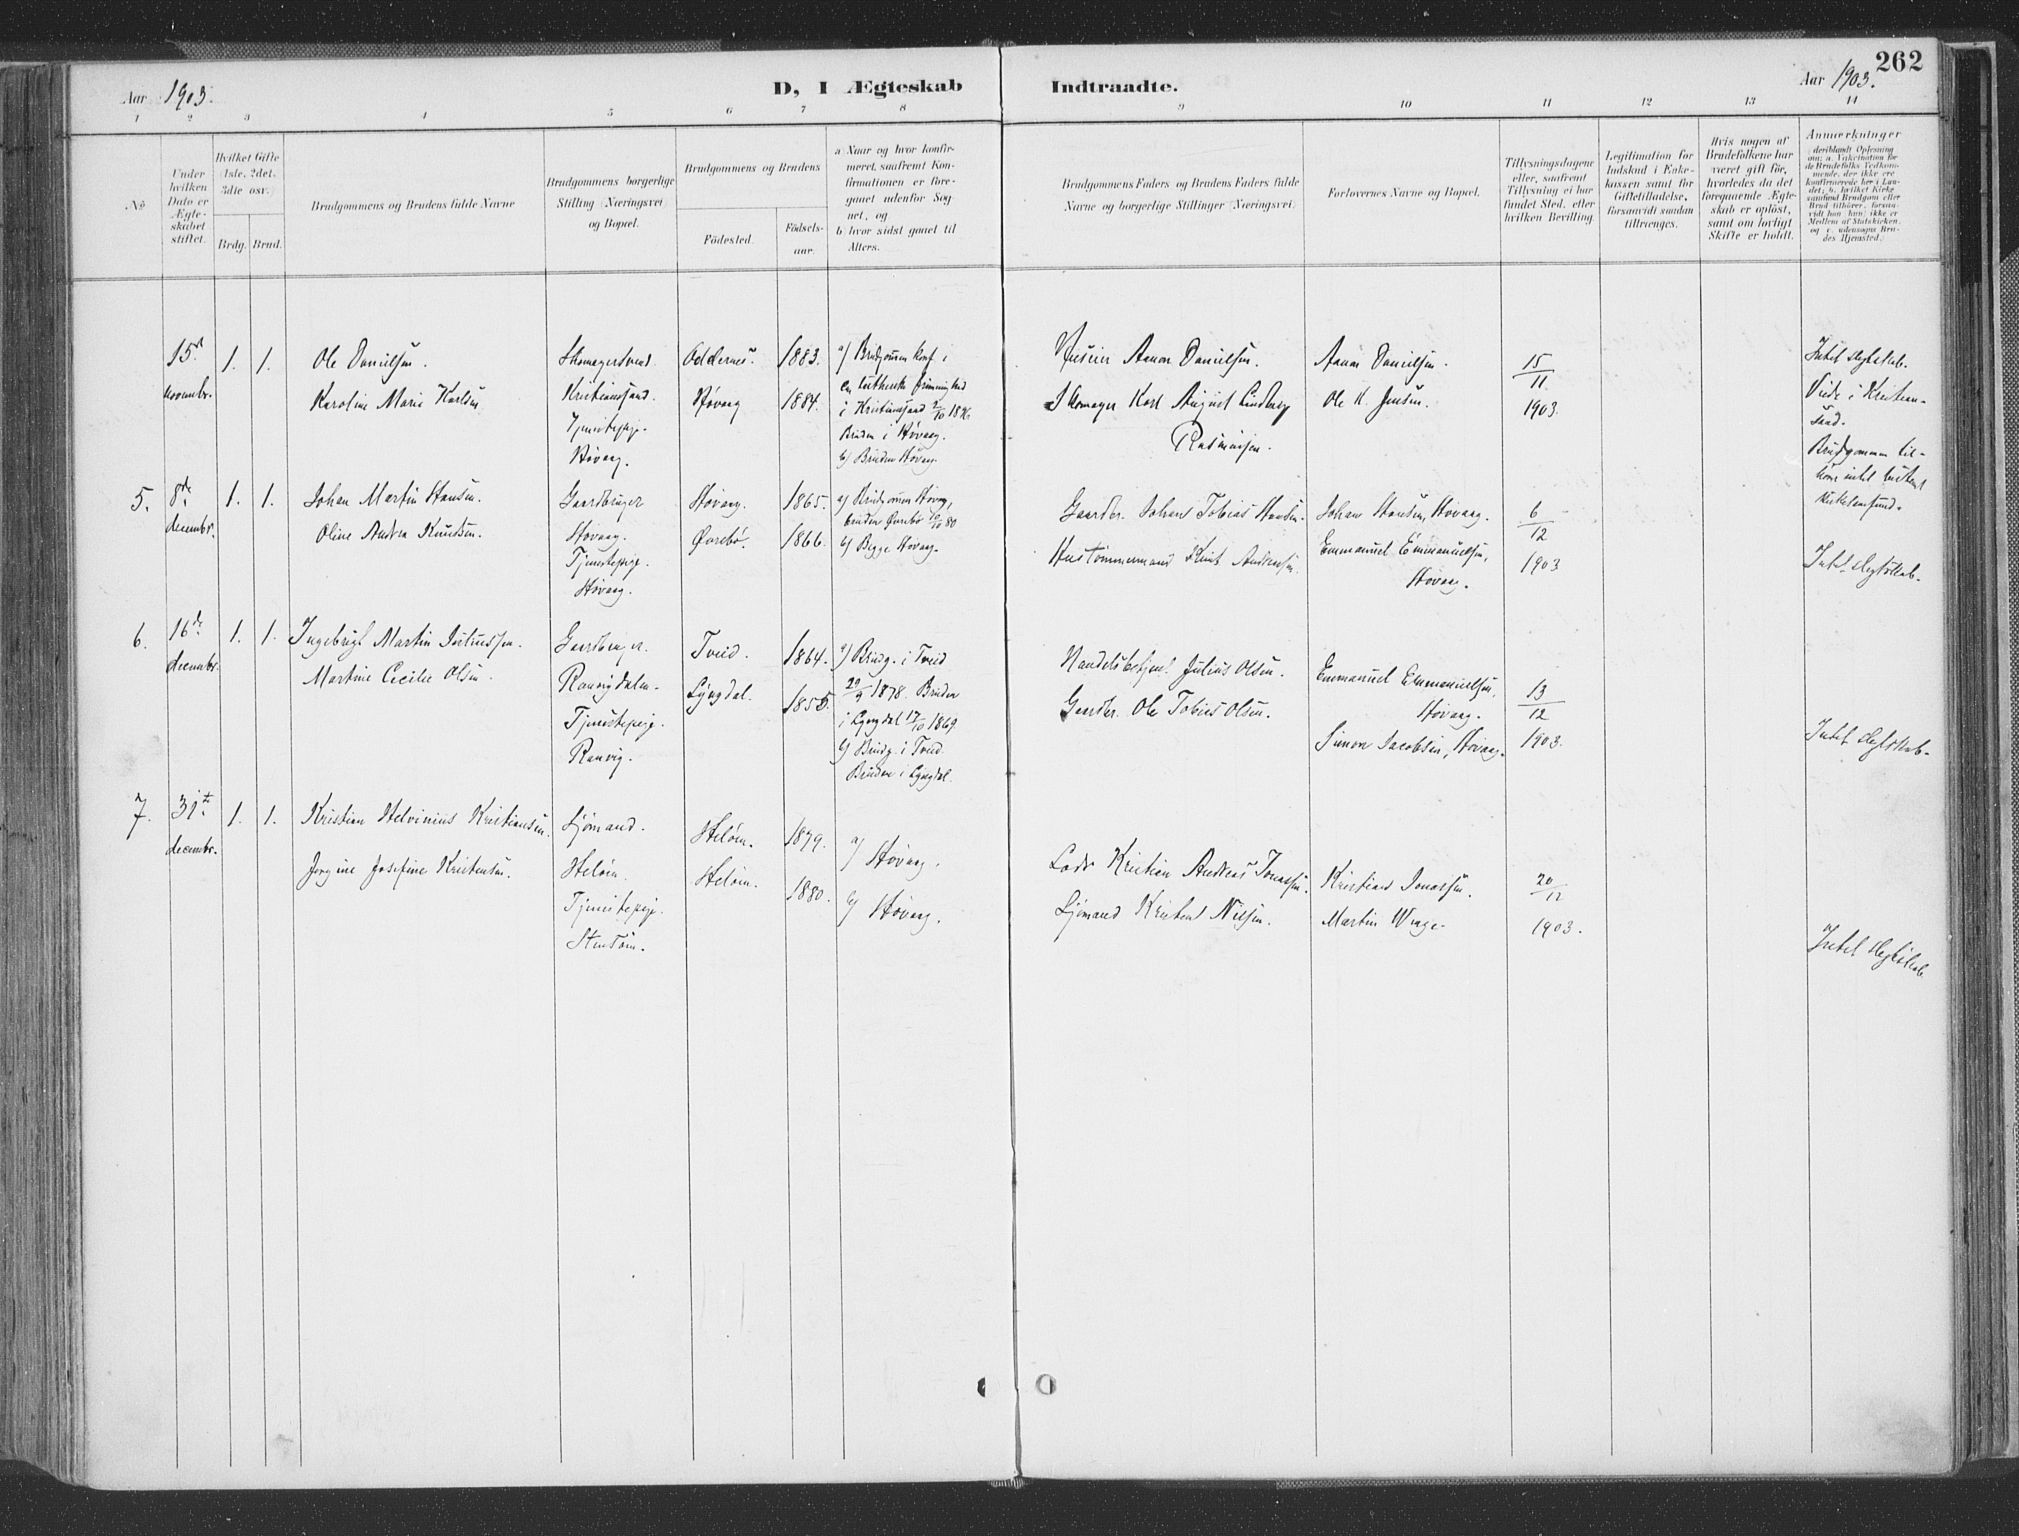 262
Aar 1903.
D, I Ægteskab Indtraadte.
Aar 1903.
1 2 3 4 5 6 7 8 9 10 11 12 13 14
No.
Under hvilken Dato er Ægteskabet stiftet.
Hvilket Gifte (1ste, 2det, 3die osv.)
Brdg. Brud.
Brudgommens og Brudens fulde Navne
Brudgommens borgerlige Stilling (Næringsvei) og Bopæl.
Brudgommens og Brudens
Födested.
Födselsaar.
a Naar og hvor konfirmeret, saafremt Konfirmationen er foregaaet udenfor Sognet, og
b hvor sidst gaaet til Alters.
Brudgommens Faders og Brudens Faders fulde Navne og borgerlige Stillinger (Næringsvei).
Forlovernes Navne og Bopæl.
Tillysningsdagene eller, saafremt Tillysning ei har fundet Sted, efter hvilken Bevilling.
Legitimation for Indskud i Enkekassen samt for Giftetilladelse, forsaavidt saadan tiltrænges.
Hvis nogen af Brudefolkene har været gift för, hvorledes da det foregaaende Ægteskab er oplöst, samt om lovligt Skifte er holdt.
Anmerkninger
15d novembr. 1. 1.
Ole Danielsen.
Karoline Marie Karlsen
Skomagersvend
Kristianssand.
Tjenestepige.
Høvaag.
Oddernes. 1883.
Høvaag 1884.
a) Brudgommen konf. i
en luthersk frimenighed
i Kristianssand
Bruden i Høvaag.
b) Bruden Høvaag.
Huseier Aanon Danielsen.
Skomager Karl August Lindberg
Rasmussen.
Aanon Danielsen.
Ole K. Jensen.
15/11 1903
Intet slegtskab.
Viede i Kristianssand.
Brudgommen til-
5. 8de decembr. 1. 1.
Johan Martin Hansen.
Oline Andrea Knutsen.
Gaardbruger
Høvaag.
Tjenestepige.
Høvaag.
Høvaag. 1865.
Øvrebø. 1866.
a) Brudgommen Høvaag,
bruden Øvrebø 10/10 80
b) Begge Høvaag.
Gaardbr. Johan Tobias Hansen.
Hustømmermand Knut Andersen.
Johan Hansen, Høvaag.
Emmanuel Emmanuelsen,
Høvaag.
6/12 1903
Intet slegtskab.
6. 16de decembr. 1. 1.
Ingebrigt Martin Juliussen.
Martine Cecilie Olsen.
Gaardbruger.
Ranvigdalen.
Tjenestepige.
Ranvig.
Tveid. 1864.
Lyngdal. 1855.
a) Brudg. i Tveid
29/9 1878. Bruden
i Lyngdal 17/10 1869.
b) Brudg. i Tveid.
Bruden i Lyngdal.
Handelsbetjent Julius Olsen.
Gaardbr. Ole Tobias Olsen.
Emmanuel Emmanuelsen,
Høvaag.
Simon Jacobsen, Høvaag.
13/12 1903.
Intet slegtskab.
7. 31te decembr. 1. 1.
Kristian Helvinius Kristiansen.
Jorgine Josefine Kristensen.
Sjömand.
Heløen.
Tjenestepige.
Stensöen.
Heløen. 1879.
Heløen. 1880.
a) Høvaag.
b) Høvaag.
Lods Kristian Andreas Jonassen.
Sjømand Kristen Nilsen.
Kristian Jonassen.
Martin Wege.
20/12 1903.
Intet slegtskab